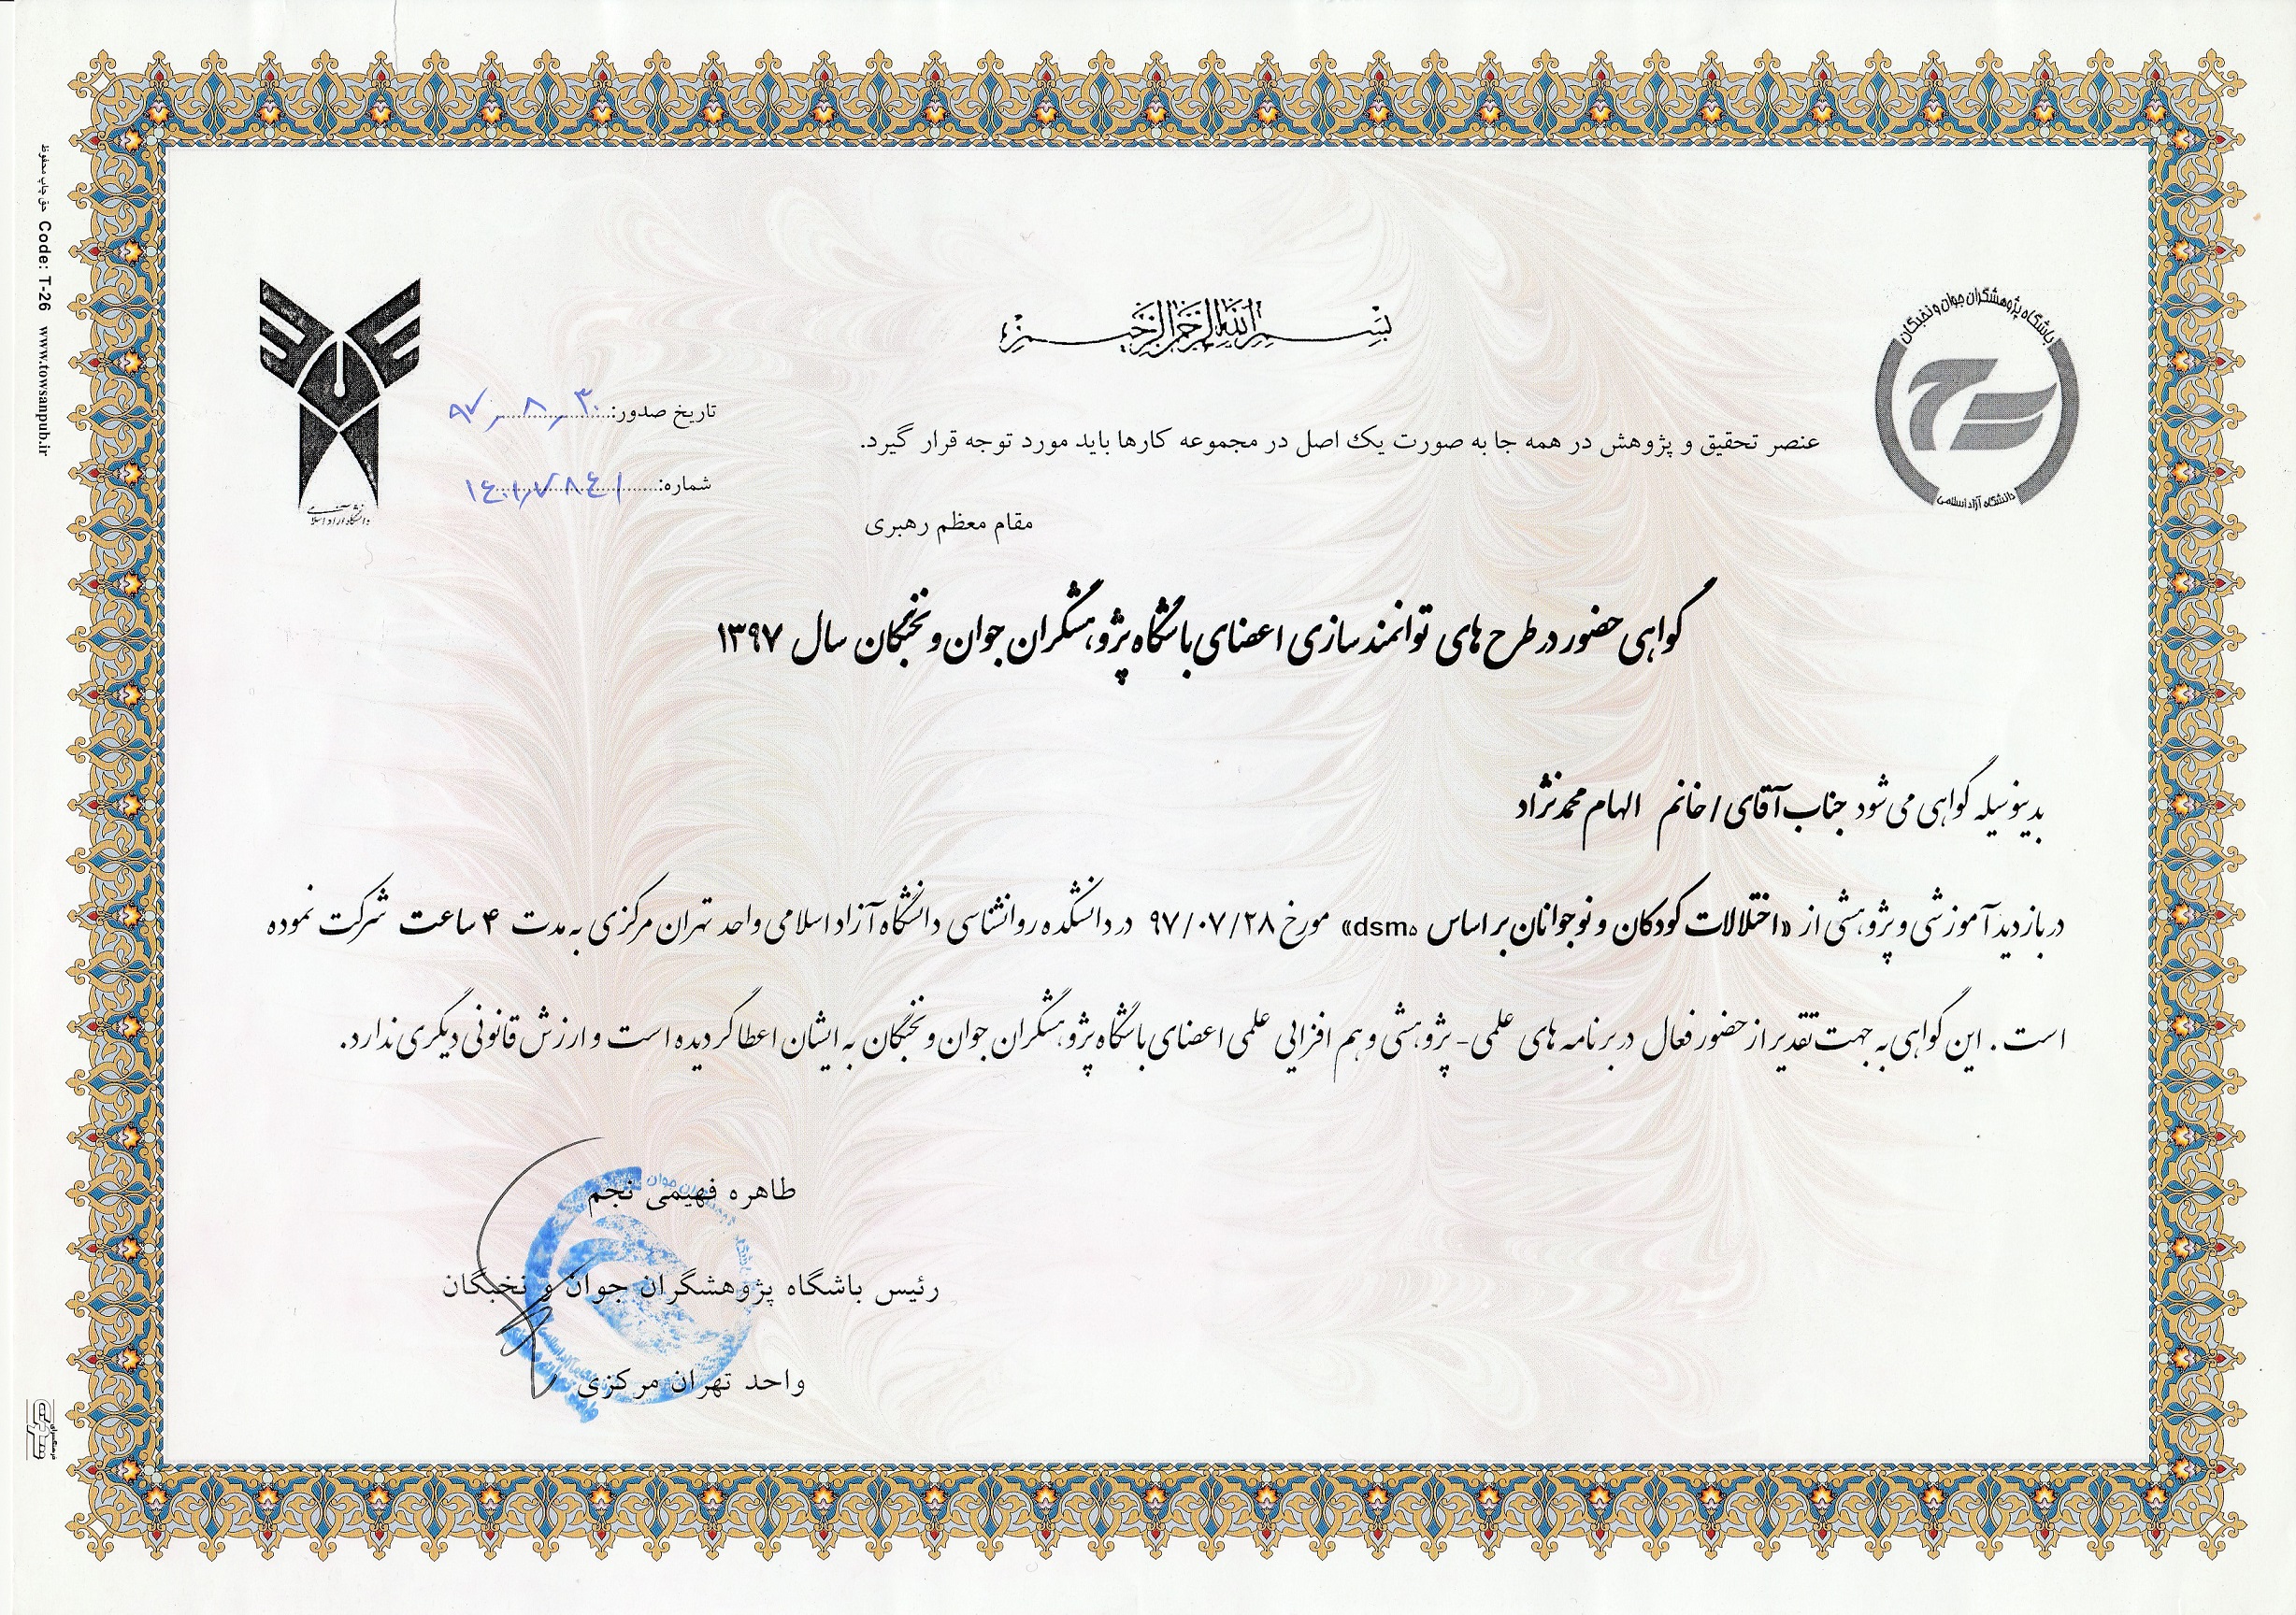 بسم الله الرحمن الرحیم
باشگاه پژوهشگران جوان و نخبگان
دانشگاه آزاد اسلامی
دانشگاه آزاد اسلامی
تاریخ صدور: ۹۷٫۸٫۳۰
عنصر تحقیق و پژوهش در همه جا به صورت یک اصل در مجموعه کارها باید مورد توجه قرار گیرد.
شماره: ۱۴۰۱٫۷۸۴۱
مقام معظم رهبری
گواهی حضور در طرح های توانمند سازی اعضای باشگاه پژوهشگران جوان و نخبگان سال ۱۳۹۷
بدینوسیله گواهی می شود جناب آقای / خانم الهام محمدنژاد
در بازدید آموزشی و پژوهشی از «اختلالات کودکان و نوجوانان بر اساس dsm۵» مورخ ۹۷/۰۷/۲۸ در دانشکده روانشناسی دانشگاه آزاد اسلامی واحد تهران مرکزی به مدت ۴ ساعت شرکت نموده
است . این گواهی به جهت تقدیر از حضور فعال در برنامه های علمی- پژوهشی و هم افزایی علمی اعضای باشگاه پژوهشگران جوان و نخبگان به ایشان اعطا گردیده است و ارزش قانونی دیگری ندارد.
طاهره فهیمی نجم
رئیس باشگاه پژوهشگران جوان و نخبگان
واحد تهران مرکزی
حق چاپ محفوظ Code: T-26 www.towsanpub.ir